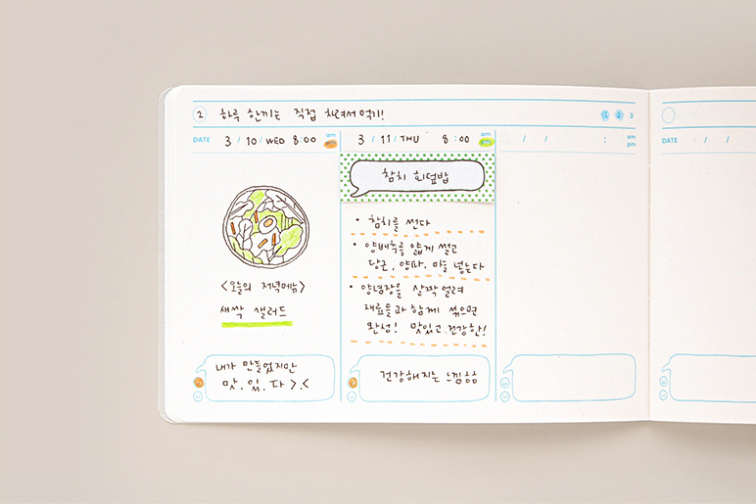 2 하루 한끼는 직접 차려서 먹기! 3
DATE 3 / 10 / WED 8:00 am pm
<오늘의 저녁메뉴>
새싹 샐러드
내가 만들었지만
맛.있.다 >.<
3 / 11 / THU 8:00 am pm
참치 회덮밥
• 참치를 썬다
• 양배추를 얇게 썰고
당근, 양파, 마늘 넣는다
• 양념장을 살짝 얼려
재료들과 함께 섞으면
완성! 맛있고 건강한!
건강해지는 느낌 ㅎㅎ
/ / : am pm
DATE / /